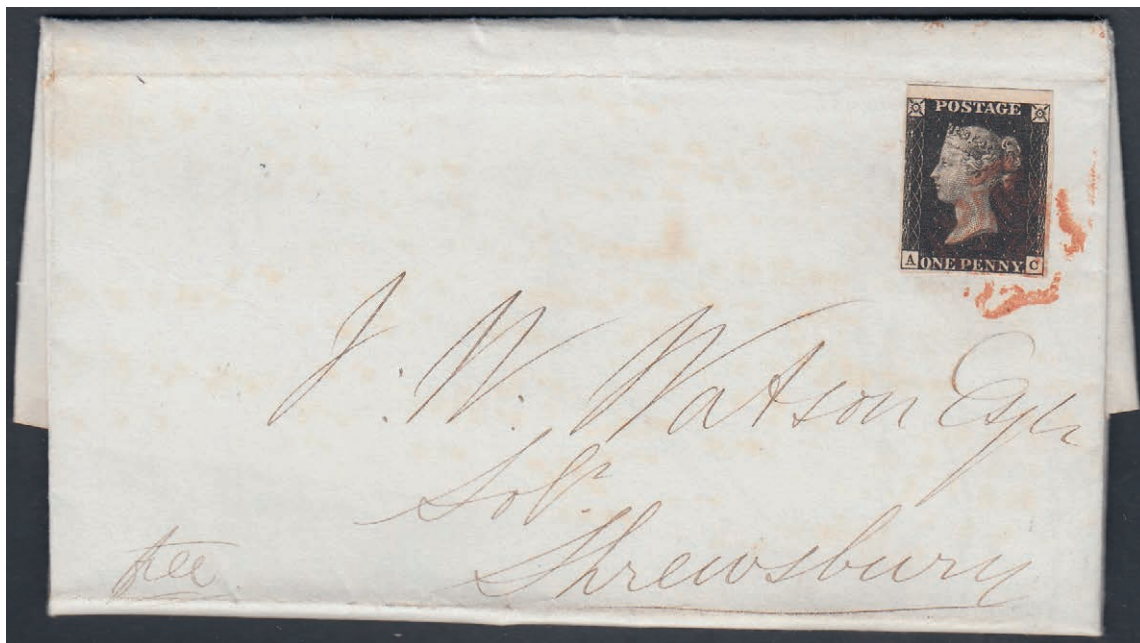 POSTAGE
A ONE PENNY C
J. W. Watson Esqr
Solr.
Shrewsbury
free